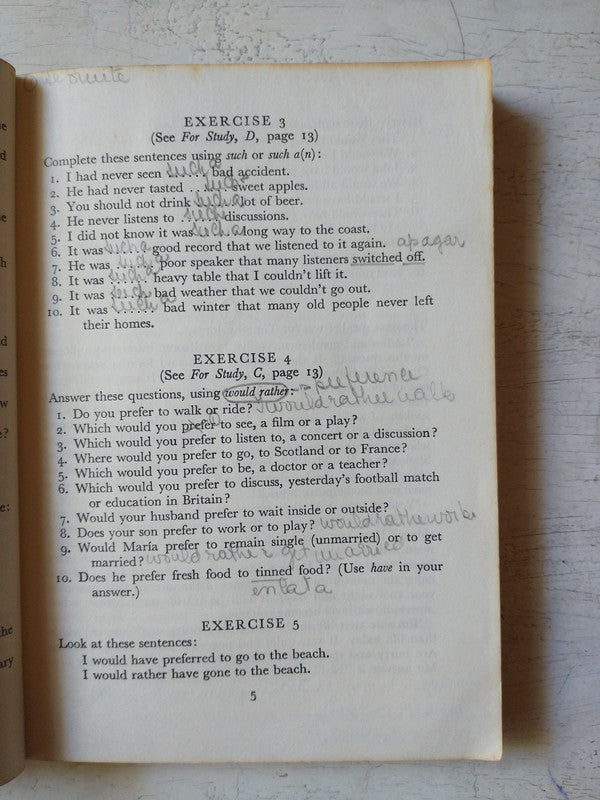 EXERCISE 3
(See For Study, D, page 13)
Complete these sentences using such or such a(n):
1. I had never seen such a bad accident.
2. He had never tasted such sweet apples.
3. You should not drink such a lot of beer.
4. He never listens to such discussions.
5. I did not know it was such a long way to the coast.
6. It was such a good record that we listened to it again. apagar
7. He was such a poor speaker that many listeners switched off.
8. It was such a heavy table that I couldn't lift it.
9. It was such bad weather that we couldn't go out.
10. It was such a bad winter that many old people never left
their homes.
EXERCISE 4
(See For Study, C, page 13)
Answer these questions, using would rather: = preference
1. Do you prefer to walk or ride? I would rather walk
2. Which would you prefer to see, a film or a play?
3. Which would you prefer to listen to, a concert or a discussion?
4. Where would you prefer to go, to Scotland or to France?
5. Which would you prefer to be, a doctor or a teacher?
6. Which would you prefer to discuss, yesterday's football match
or education in Britain?
7. Would your husband prefer to wait inside or outside?
8. Does your son prefer to work or to play? would rather work
9. Would María prefer to remain single (unmarried) or to get
married? would rather get married
10. Does he prefer fresh food to tinned food? (Use have in your
answer.) enlata
EXERCISE 5
Look at these sentences:
I would have preferred to go to the beach.
I would rather have gone to the beach.
5